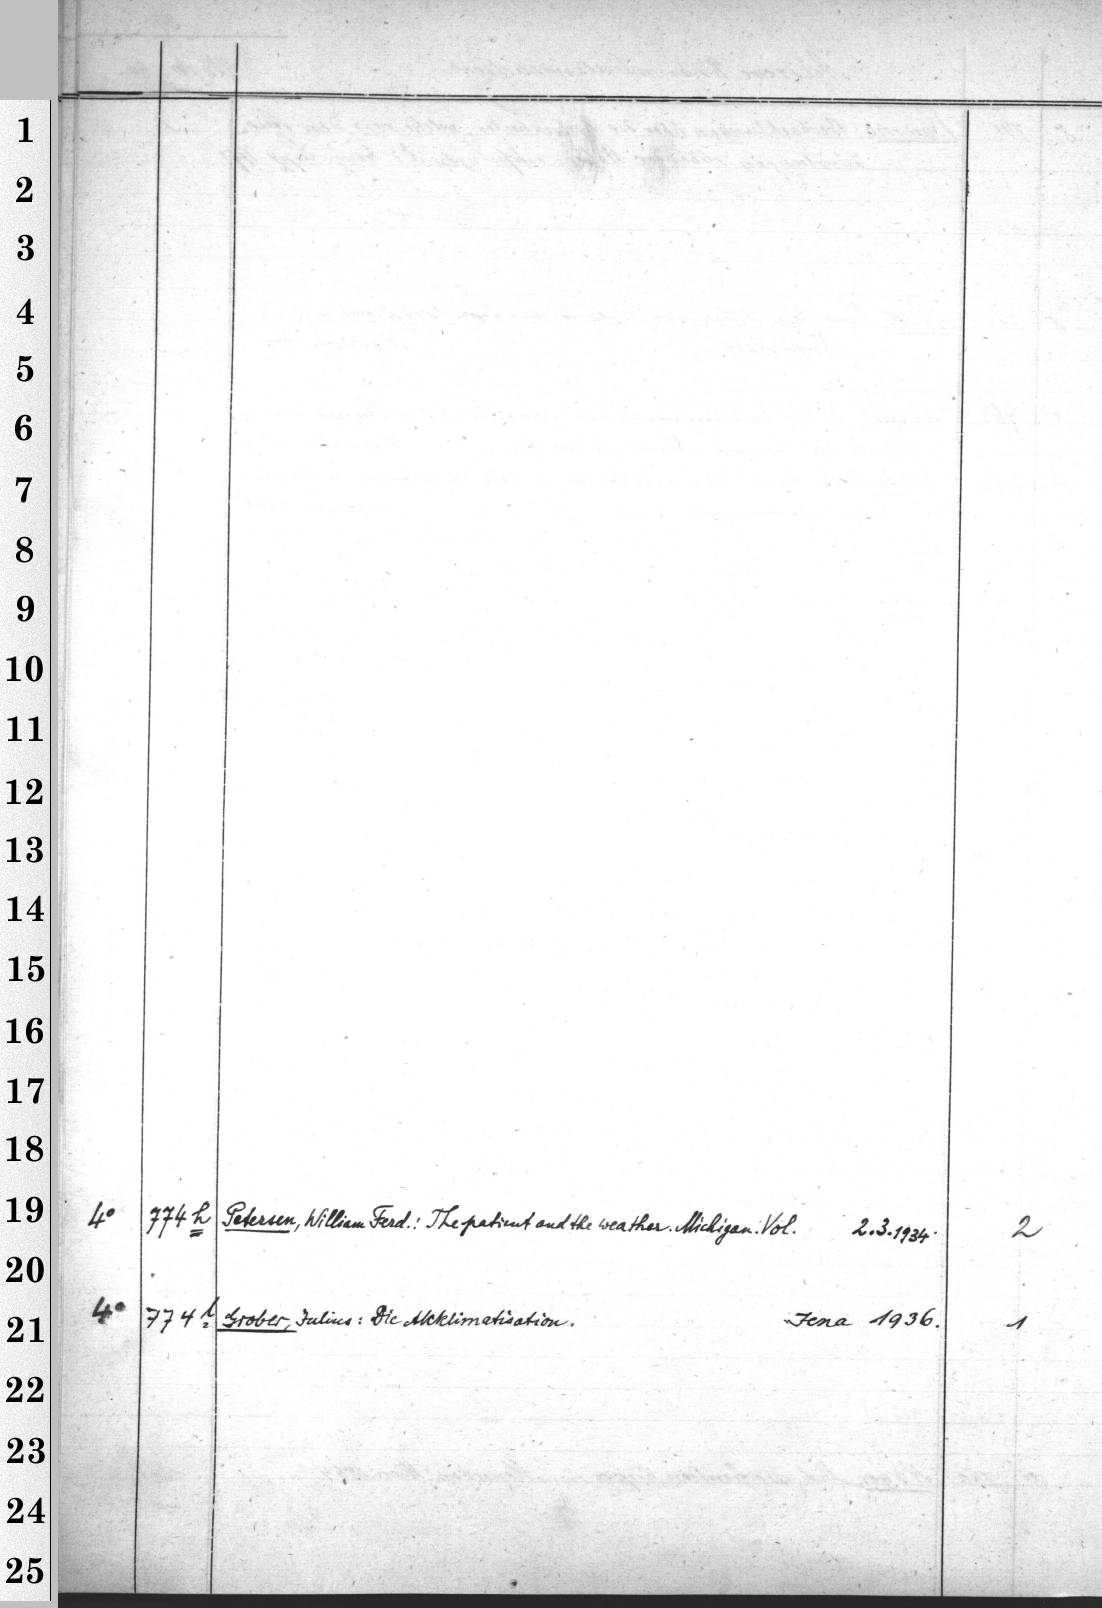 1
2
3
4
5
6
7
8
9
10
11
12
13
14
15
16
17
18
19
4° 774 h Petersen, William Ferd.: The patient and the weather. Michigan. Vol. 2.3.1934. 2
20
4° 774 l Grober, Julius: Die Akklimatisation. Jena 1936. 1
21
22
23
24
25